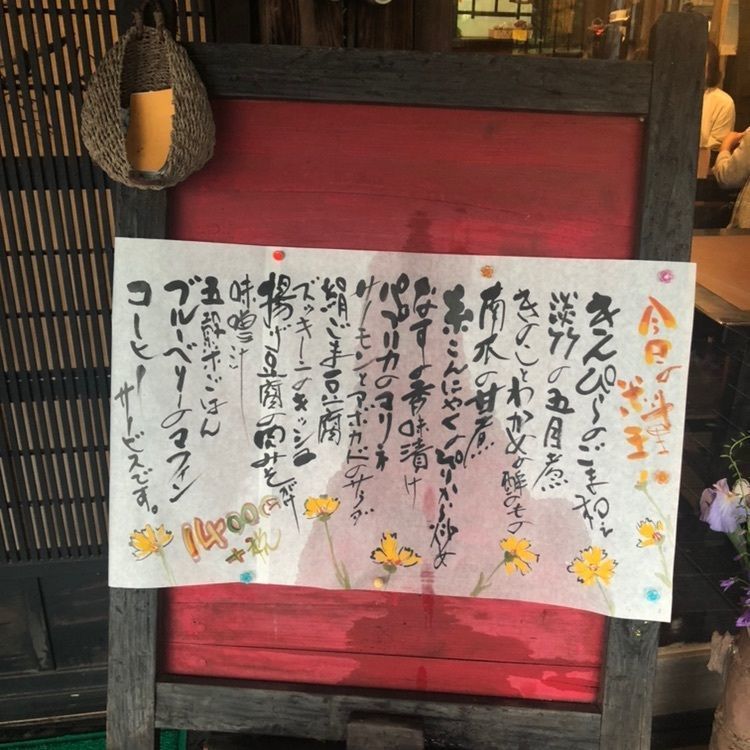 今日の料理
きんぴらのごまあえ
淡竹の五目煮
きのことわかめの酢のもの
南水の甘煮
糸こんにゃくのぴりから炒め
なすの香味漬け
パプリカのマリネ
サーモンとアボカドのサラダ
絹ごま豆腐
ズッキーニのキッシュ
揚げ豆腐の肉みそがけ
味噌汁
五穀米ごはん
ブルーベリーのマフィン
コーヒーサービスです。
1400円
+税